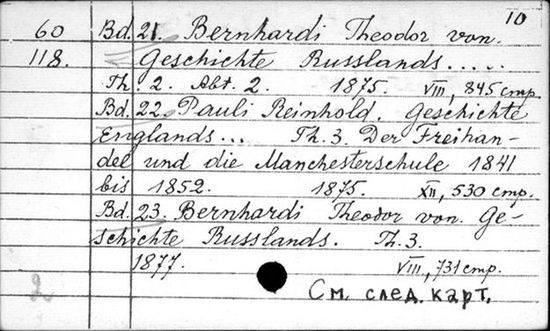 10
60 Bd. 21. Bernhardi Theodor von.
118. Geschichte Russlands.....
Th. 2. Abt. 2. 1875. VIII, 845 стр.
Bd. 22. Pauli Reinhold. Geschichte
Englands... Th. 3. Der Freihan-
del und die Manchesterschule 1841
bis 1852. 1875. XII, 530 стр.
Bd. 23. Bernhardi Theodor von. Ge-
schichte Russlands. Th. 3.
1877. VIII, 731 стр.
2 См. след. карт.